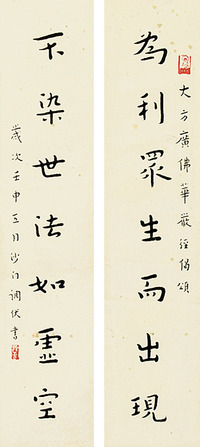 大方廣佛華嚴經偈頌
為利眾生而出現
不染世法如虛空
歲次壬申五月沙门調伏書